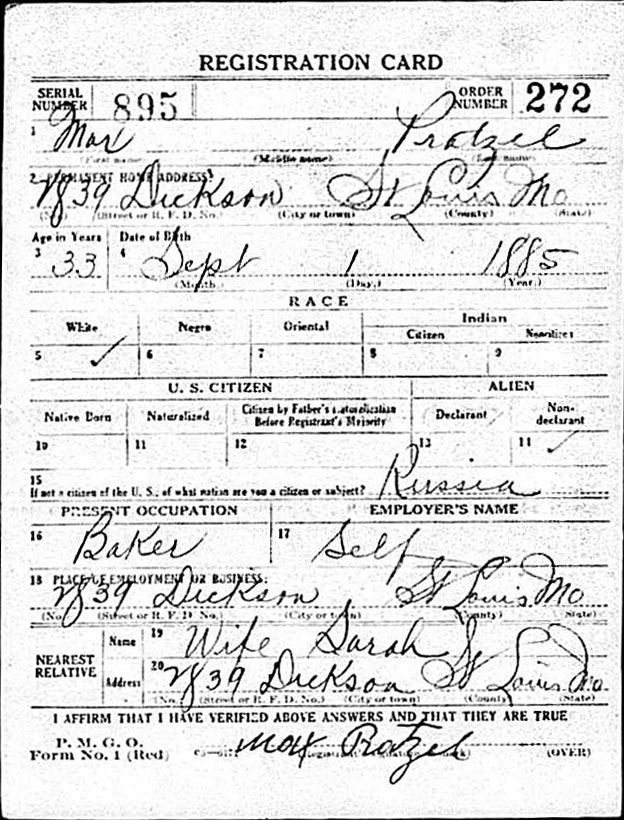 REGISTRATION CARD
SERIAL NUMBER 895 ORDER NUMBER 272
1 Max Pratzel
(First name) (Middle name) (Last name)
2 PERMANENT HOME ADDRESS:
2839 Dickson St Louis Mo
(No.) (Street or R. F. D. No.) (City or town) (County) (State)
Age in Years Date of Birth
3 33 4 Sept 1 1885
(Month.) (Day.) (Year.)
RACE
White Negro Oriental Indian
Citizen Noncitizen
5 ✓ 6 7 8 9
U. S. CITIZEN ALIEN
Native Born Naturalized Citizen by Father's Naturalization Before Registrant's Majority Declarant Non-declarant
10 11 12 13 14 ✓
15 If not a citizen of the U. S., of what nation are you a citizen or subject? Russia
PRESENT OCCUPATION EMPLOYER'S NAME
16 Baker 17 Self
18 PLACE OF EMPLOYMENT OR BUSINESS:
2839 Dickson St Louis Mo
(No.) (Street or R. F. D. No.) (City or town) (County) (State)
NEAREST RELATIVE Name 19 Wife Sarah
Address 20 2839 Dickson St Louis Mo.
(No.) (Street or R. F. D. No.) (City or town) (County) (State)
I AFFIRM THAT I HAVE VERIFIED ABOVE ANSWERS AND THAT THEY ARE TRUE
P. M. G. O.
Form No. 1 (Red) Max Pratzel (OVER)